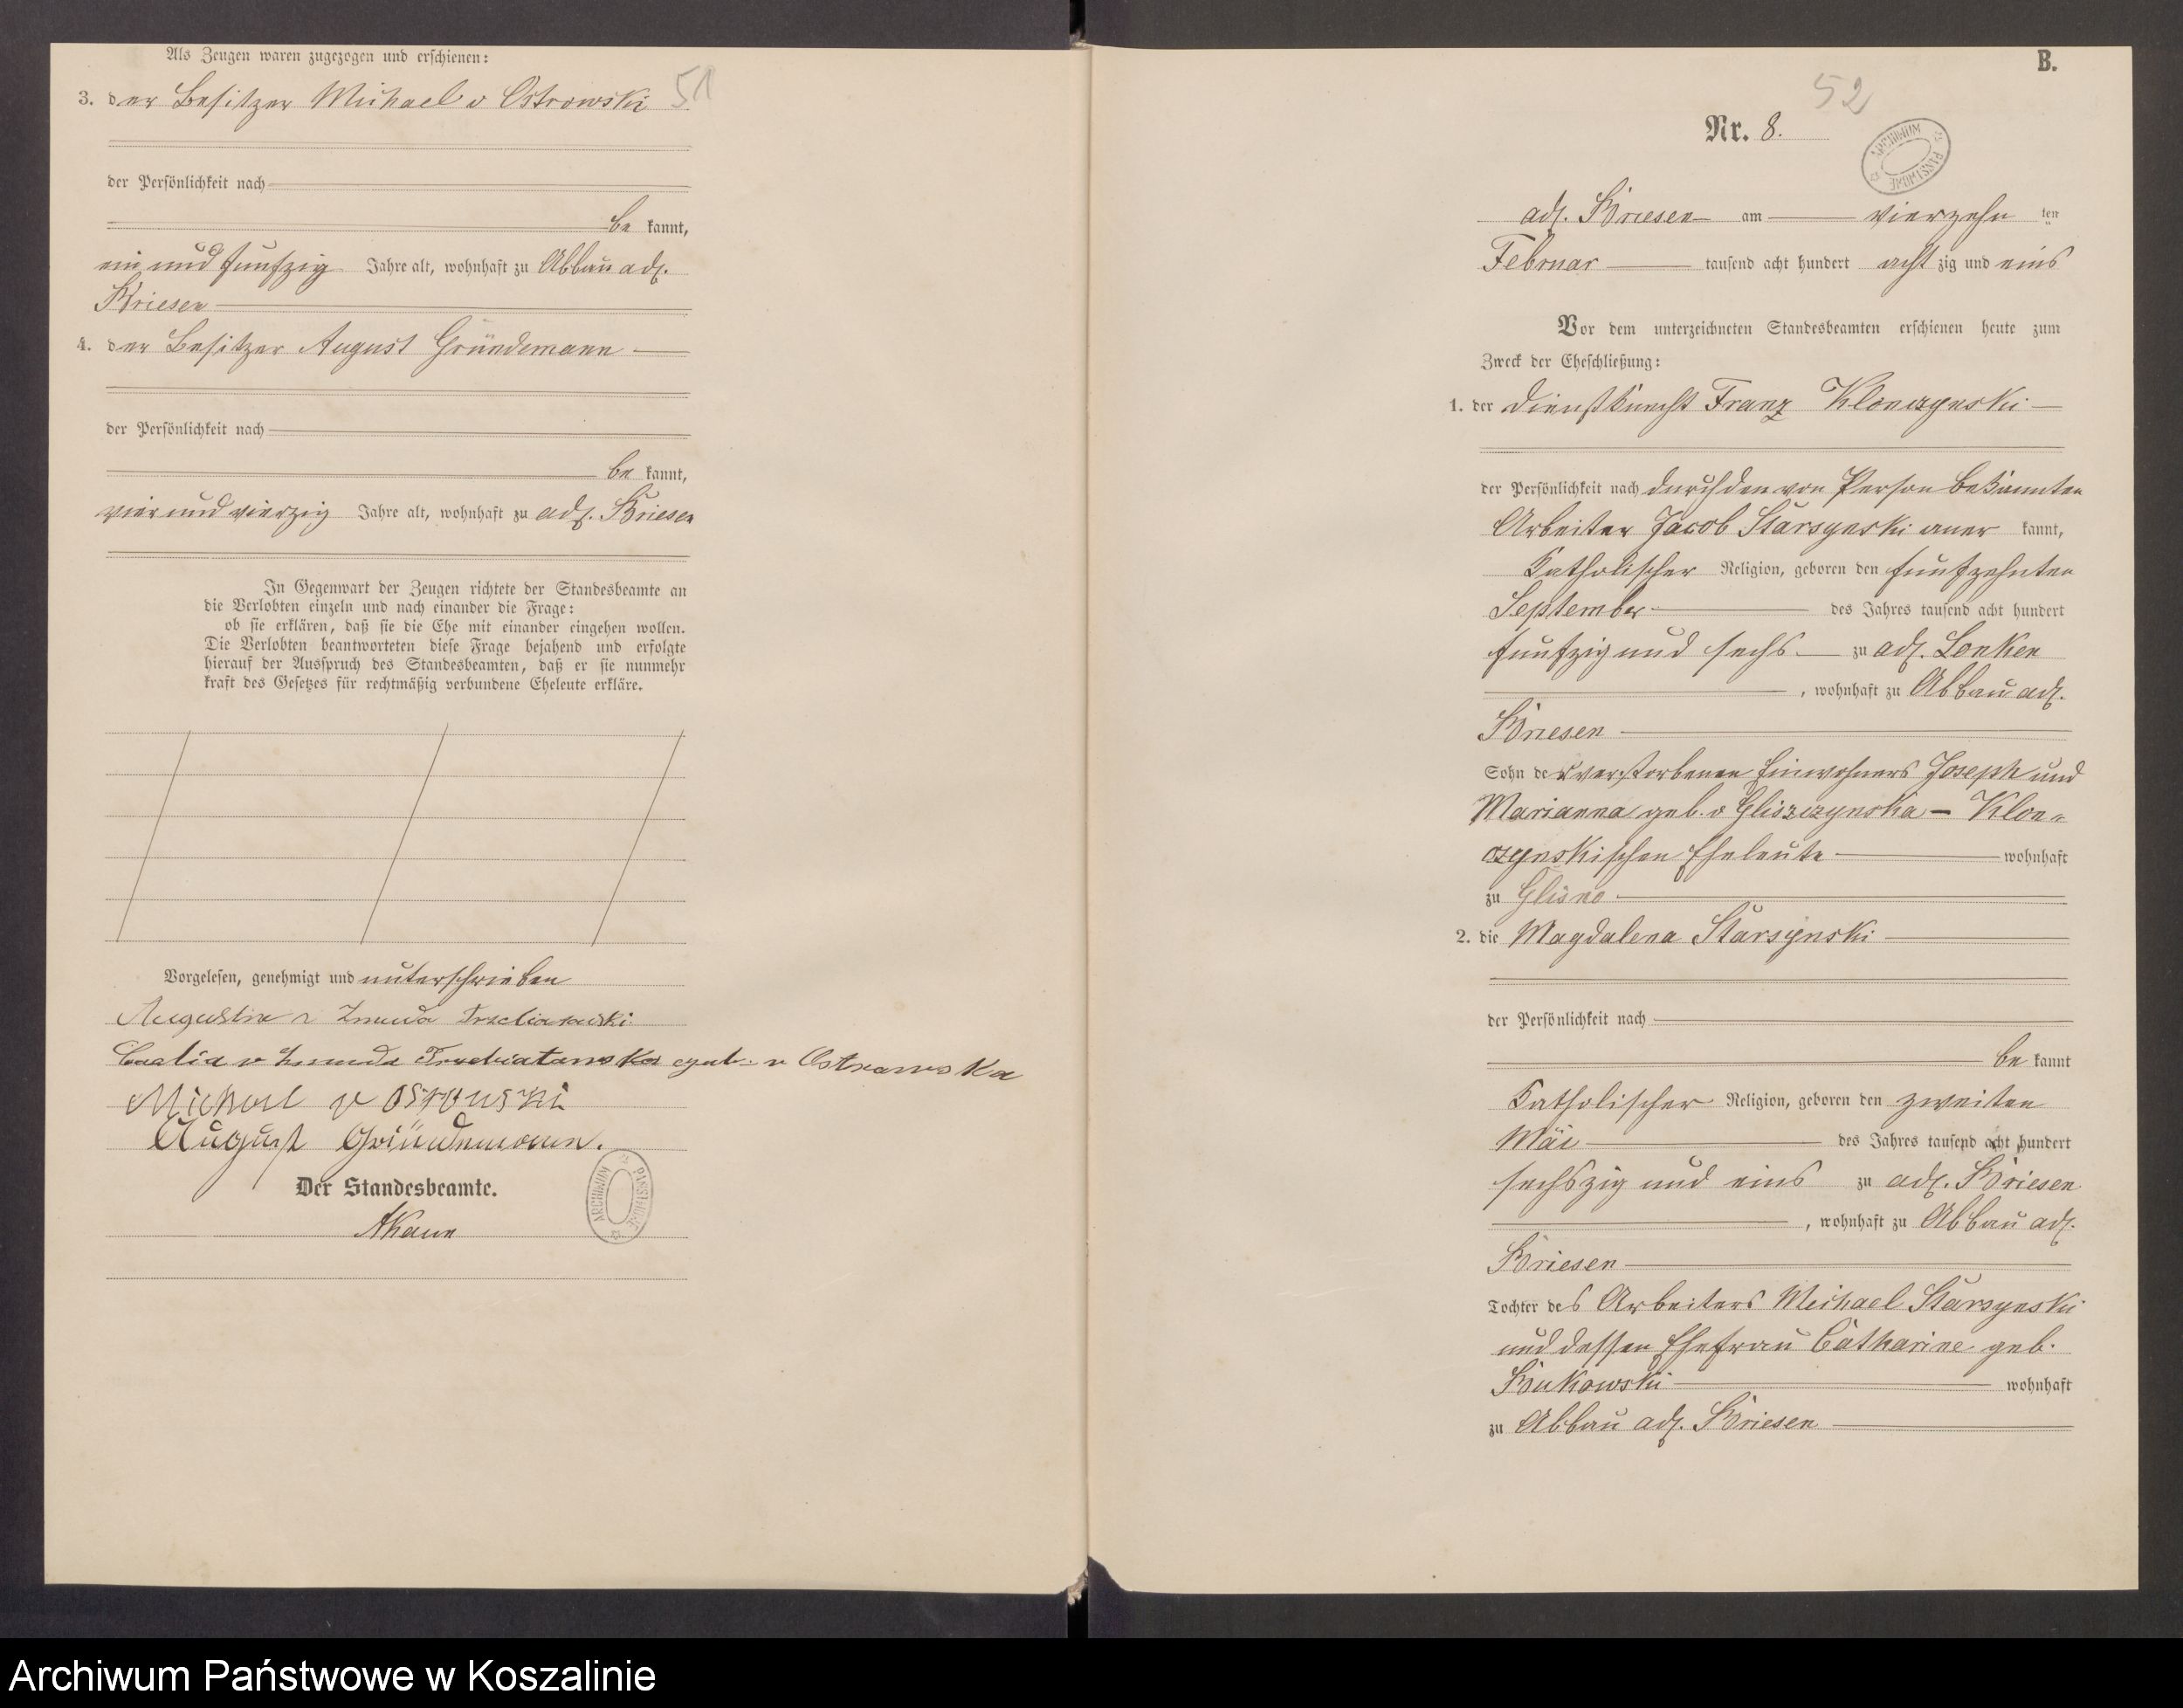 Als Zeugen waren zugezogen und erschienen:
3. der Besitzer Michael v Ostrowski 51
der Persönlichkeit nach
be kannt,
ein und funfzig Jahre alt, wohnhaft zu Abbau adl.
Briesen
4. der Besitzer August Gründemann
der Persönlichkeit nach
be kannt,
vier und vierzig Jahre alt, wohnhaft zu adl. Briesen
In Gegenwart der Zeugen richtete der Standesbeamte an
die Verlobten einzeln und nach einander die Frage:
ob sie erklären, daß sie die Ehe mit einander eingehen wollen.
Die Verlobten beantworteten diese Frage bejahend und erfolgte
hierauf der Ausspruch des Standesbeamten, daß er sie nunmehr
kraft des Gesetzes für rechtmäßig verbundene Eheleute erkläre.
Vorgelesen, genehmigt und unterschrieben
Augustin v Zmuda
v Zmuda Trzebiatowska geb. v Ostrowska
Michael v Ostrowski
August Gründemann.
Der Standesbeamte.
ARCHIWUM PAŃSTWOWE
B.
52
Nr. 8.
ARCHIWUM PAŃSTWOWE
adl. Briesen am vierzehn ten
Februar tausend acht hundert acht zig und eins
Vor dem unterzeichneten Standesbeamten erschienen heute zum
Zweck der Eheschließung:
1. der Dienstknecht Franz Klonczynski
der Persönlichkeit nach durch den von Person bekannten
Arbeiter Jacob Starsynski aner kannt,
katholischer Religion, geboren den funfzehnten
September des Jahres tausend acht hundert
funfzig und sechs zu adl. Lonken
, wohnhaft zu Abbau adl.
Briesen
Sohn der verstorbenen Einwohners Joseph und
Marianna geb. v Gliszczynska – Klon-
czynskischen Eheleute wohnhaft
zu Glisno
2. die Magdalena Starsynski
der Persönlichkeit nach
be kannt
katholischer Religion, geboren den zweiten
Mai des Jahres tausend acht hundert
sechszig und eins zu adl. Briesen
, wohnhaft zu Abbau adl.
Briesen
Tochter des Arbeiters Michael Starsynski
und dessen Ehefrau Catharine geb.
Bukowski wohnhaft
zu Abbau adl. Briesen
Archiwum Państwowe w Koszalinie